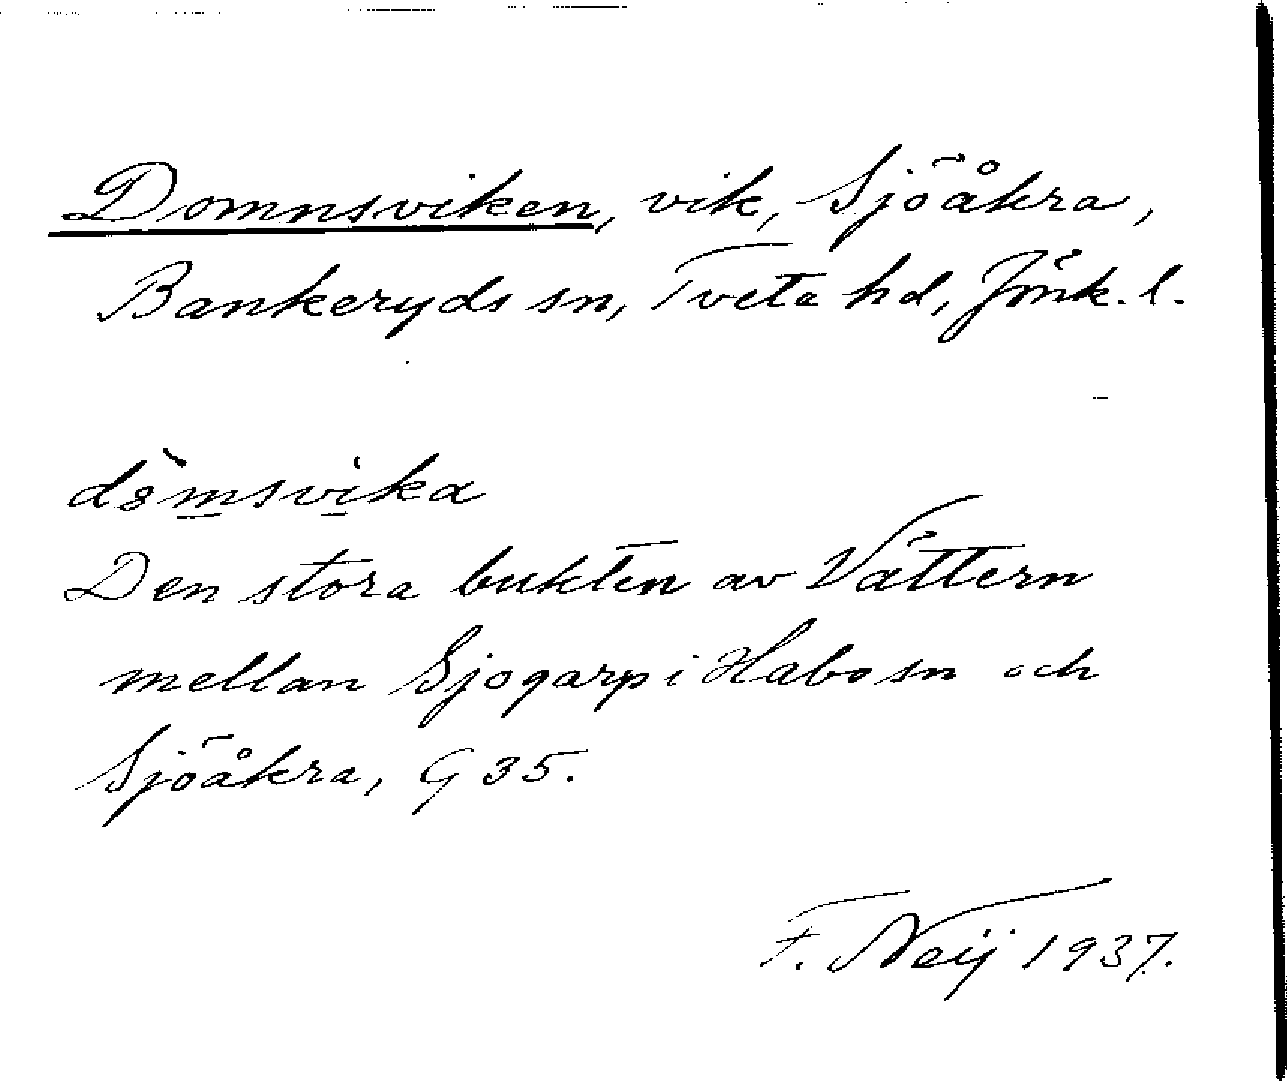 Domnsviken, vik, Sjöåkra,
Bankeryds sn, Tveta hd, Jönk. l.
Den stora bukten av Vättern
mellan Sjogarp i Habo sn och
Sjöåkra, G 35.
F. Neij 1937.